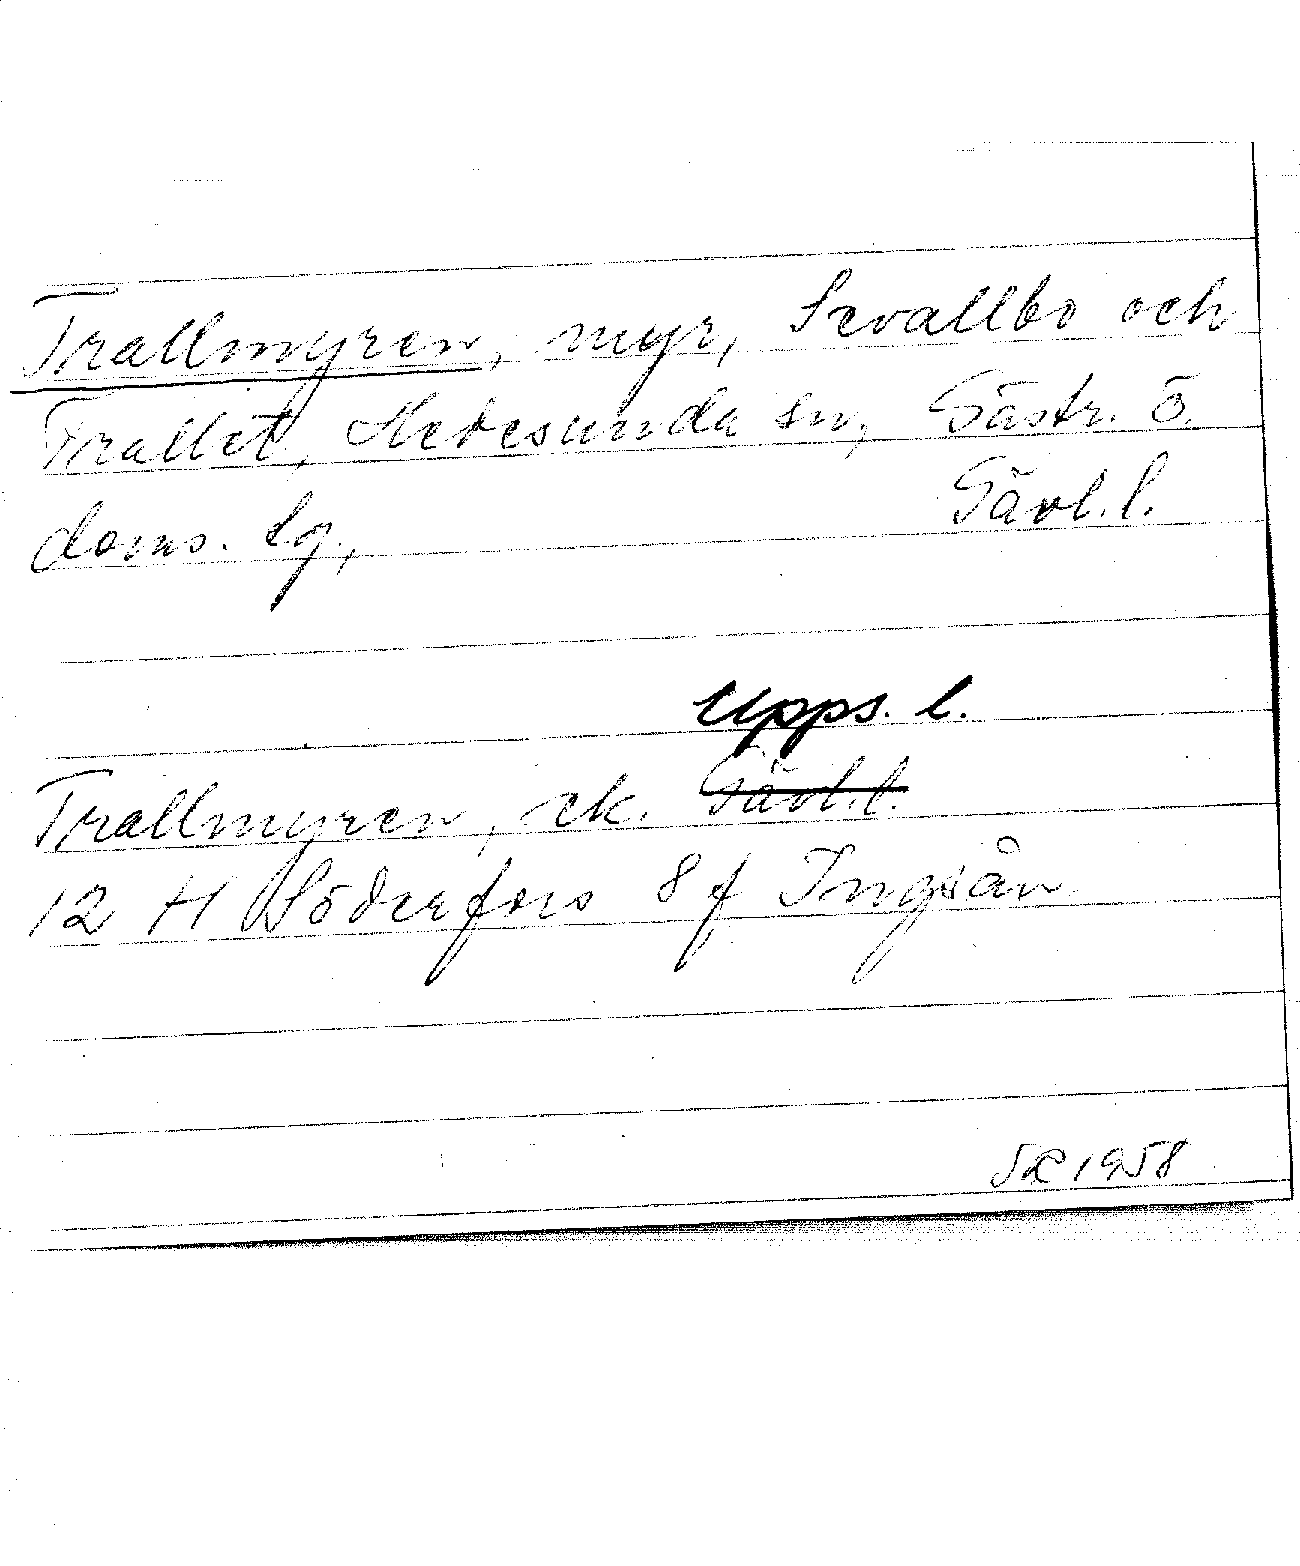 Trallmyren, myr, Sevallbo och
Trallet, Hedesunda sn, Gästr. ö.
doms. lg., Gävl. l.
Upps. l.
Trallmyren, ek. Gävl. l.
12 H Söderfors 8 f Ingsån
1958